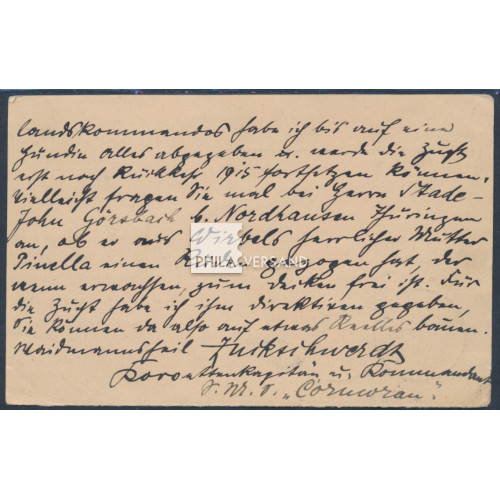 landskommandos habe ich bis auf eine
Hündin alles abgegeben u. werde die Zucht
erst nach Rückkehr 1915 fortsetzen können.
Vielleicht fragen Sie mal bei Herrn Stade-
John Görsbach b. Nordhausen Thüringen
an, ob er aus Wirbels herrlicher Mutter
Pinella einen gezogen hat, der
wenn erwachsen, zum decken frei ist. Für
die Zucht habe ich ihm direktiven gegeben,
Sie können da also auf etwas Reelles bauen.
Waidmannsheil Zuckschwerdt
Korvettenkapitän u. Kommandant
S. M. S. „Cormoran".
PHILA VERSAND